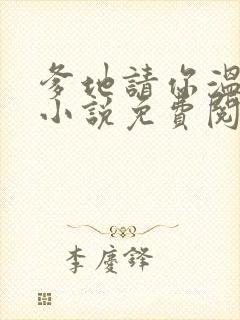 爹地請你溫
小說免費閱
李慶鋒